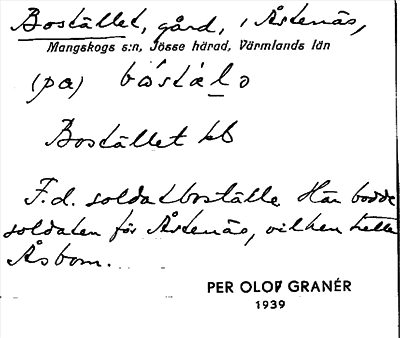 Bostället, gård, i Åstenäs,
Mangskogs s:n, Jösse härad, Värmlands län
(på) bóstàlə
Bostället kb
F.d. soldatboställe. Här bodde
soldaten för Åstenäs, vilken hette
Åsbom.
PER OLOF GRANÉR
1939